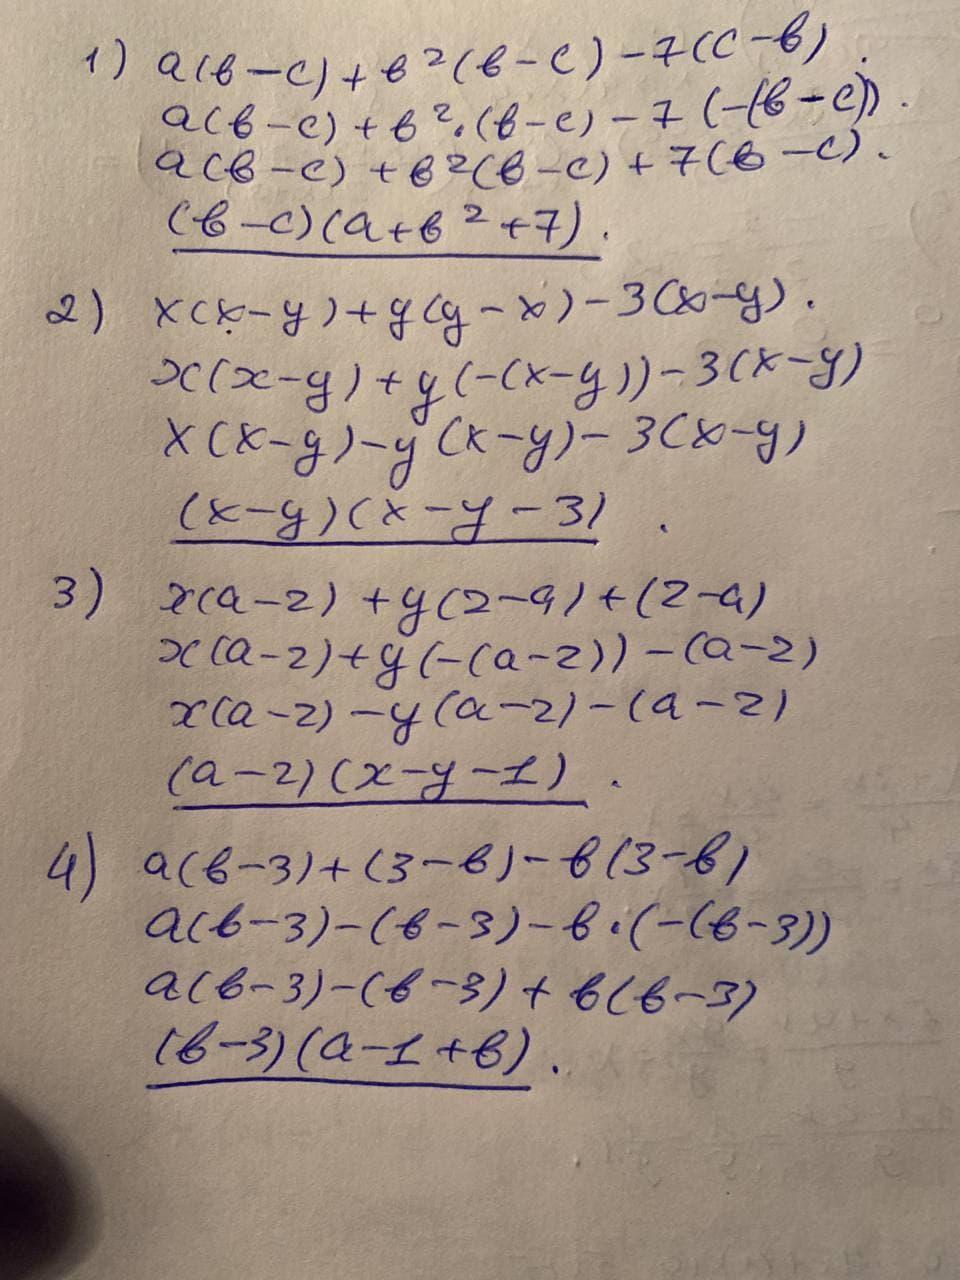 1) a(в-c)+в²(в-c)-7(c-в).
a(в-c)+в²·(в-c)-7(-(в-c)).
a(в-c)+в²(в-c)+7(в-c).
(в-c)(a+в²+7).
2) x(x-y)+y(y-x)-3(x-y).
x(x-y)+y(-(x-y))-3(x-y)
x(x-y)-y(x-y)-3(x-y)
(x-y)(x-y-3).
3) x(a-2)+y(2-a)+(2-a)
x(a-2)+y(-(a-2))-(a-2)
x(a-2)-y(a-2)-(a-2)
(a-2)(x-y-1).
4) a(в-3)+(3-в)-в(3-в)
a(в-3)-(в-3)-в·(-(в-3))
a(в-3)-(в-3)+в(в-3)
(в-3)(a-1+в).